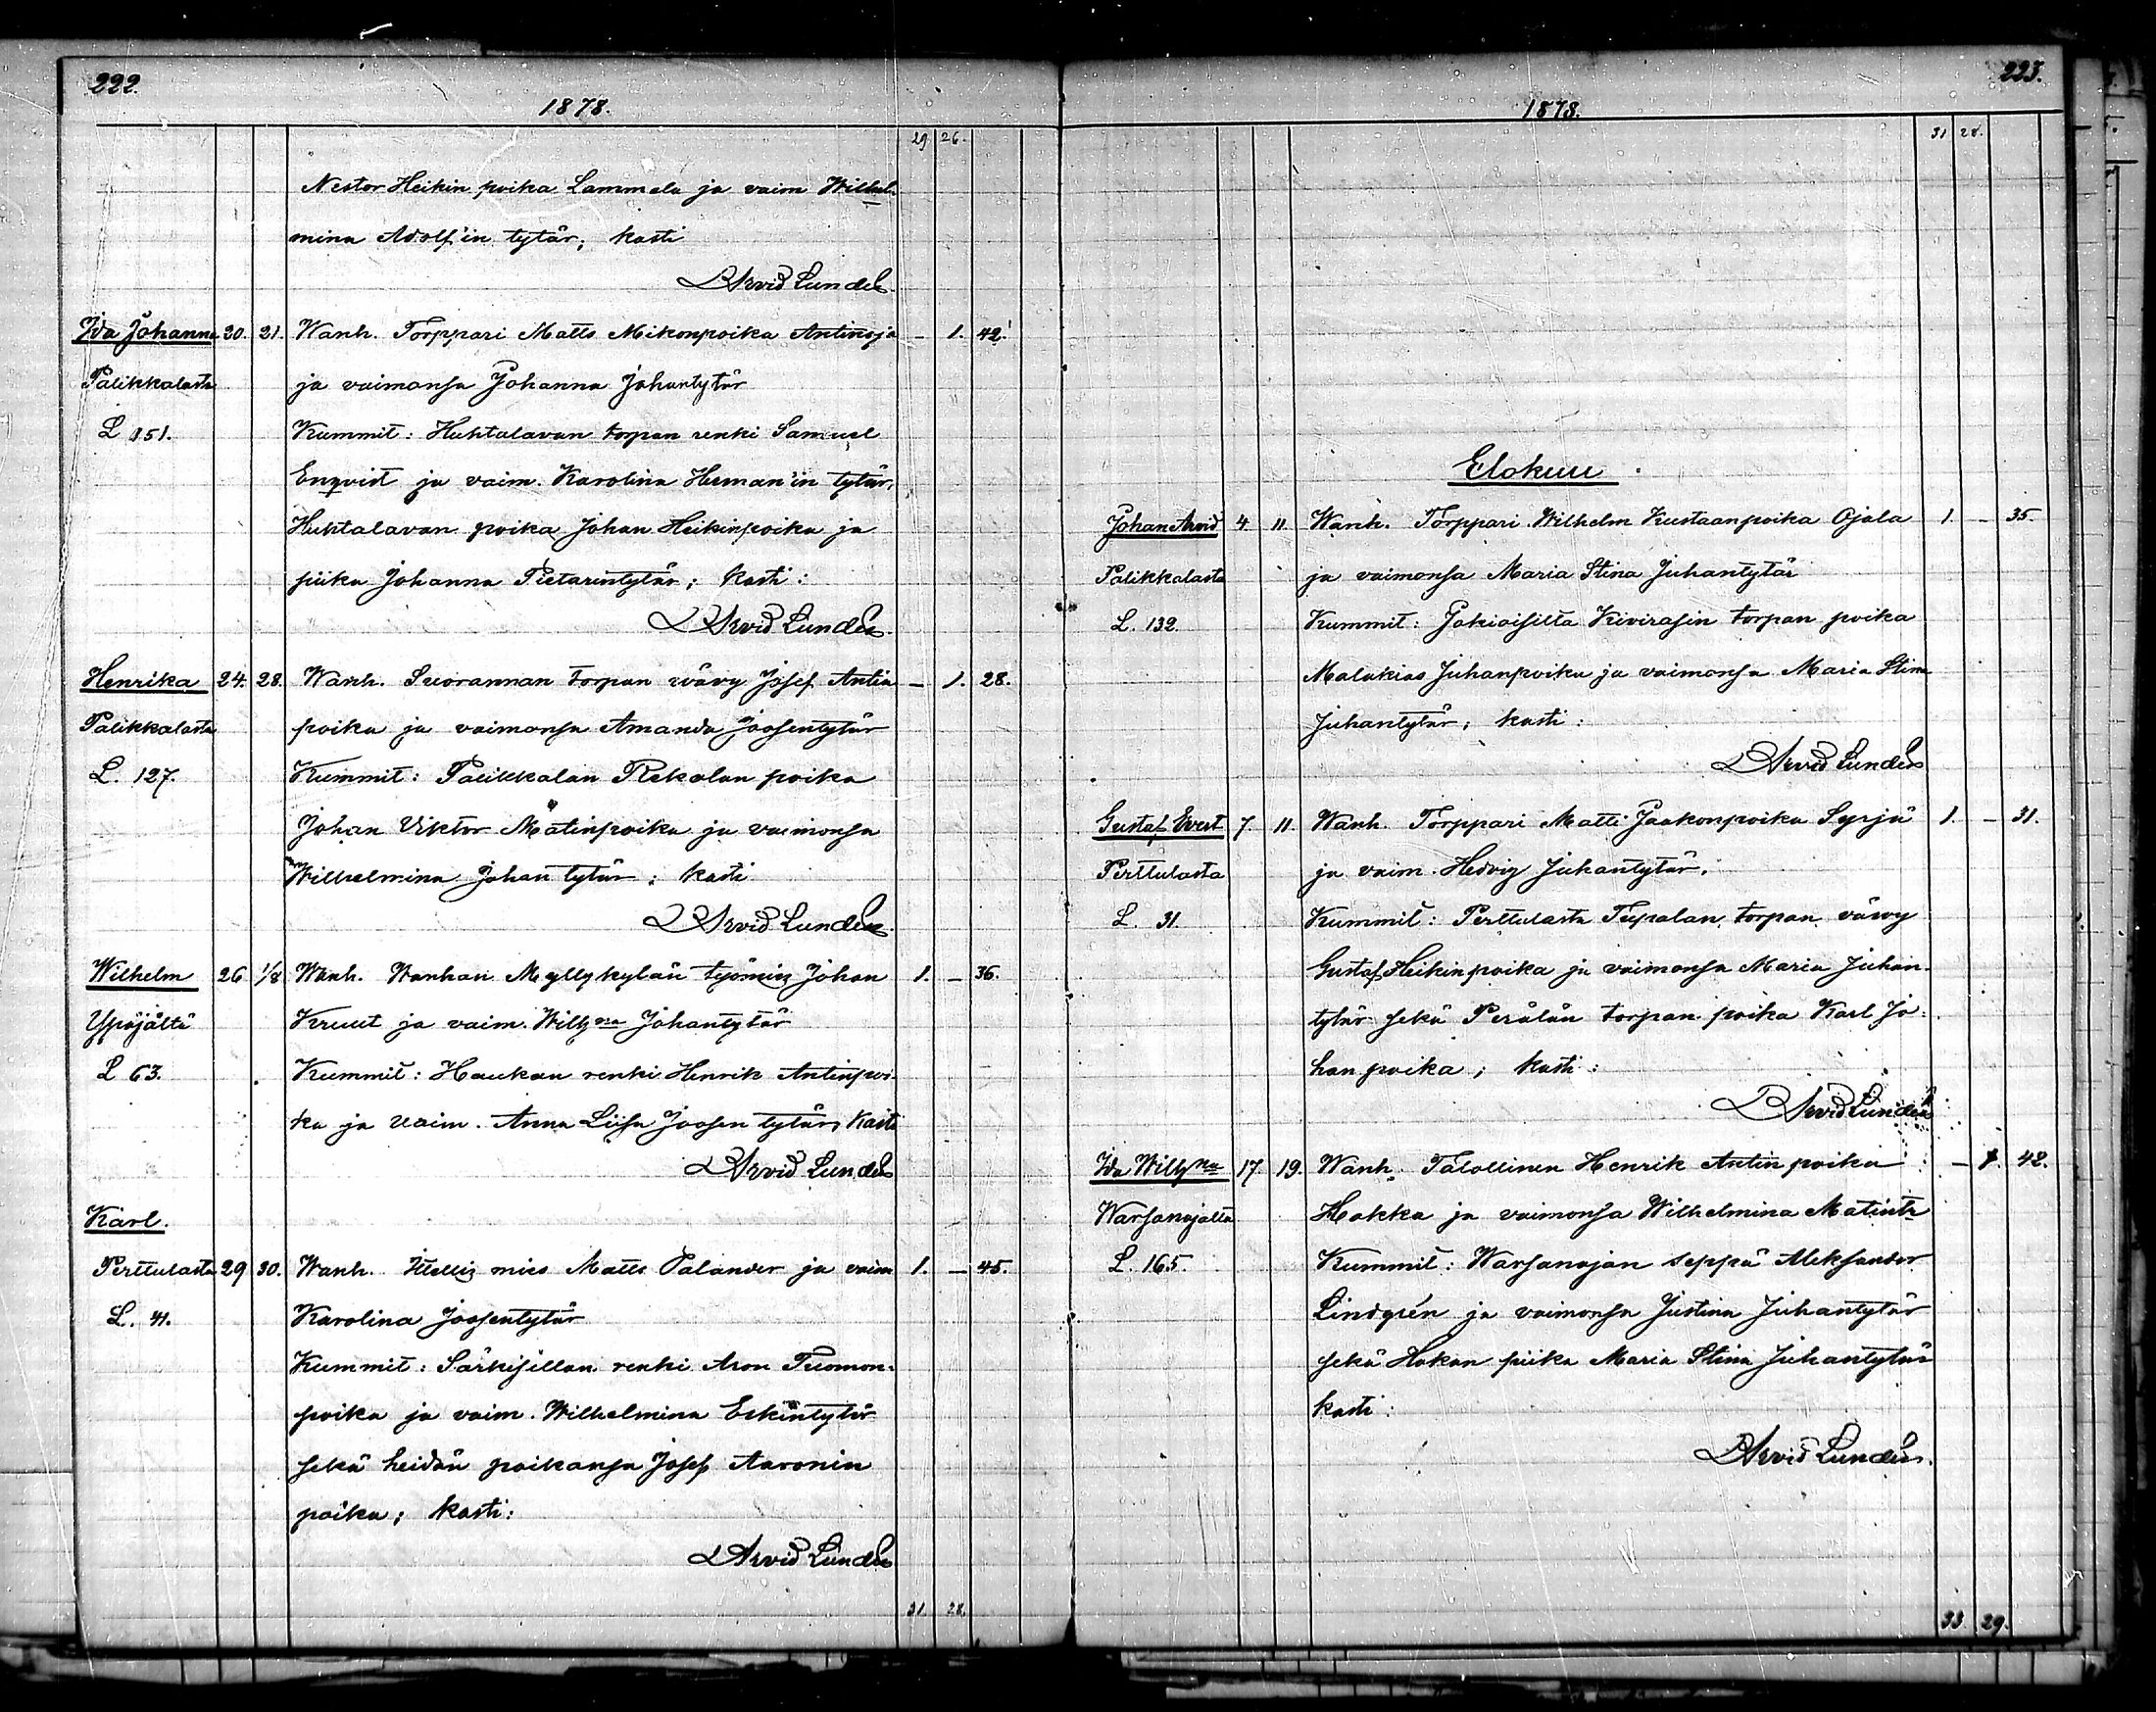 222.
1878.
29 26.
Nestor Heikin poika Lammela ja vaim Wilhel-
mina Adolf'in tytär; kasti
Arvid Lundén.
Ida Johanna 20. 21. Wanh. Torppari Matts Mikonpoika Antinoja — 1. 42.
Palikkalasta ja vaimonsa Johanna Johantytär
L 151. Kummit: Huhtalavan torpan renki Samuel
Enqvist ja vaim. Karolina Herman'in tytär,
Huhtalavan poika Johan Heikinpoika ja
piika Johanna Pietarintytär; kasti:
Arvid Lundén.
Henrika 24. 28. Wanh. Suorannan torpan wävy Josef Antin — 1. 28.
Palikkalasta poika ja vaimonsa Amanda Joosentytär
L. 127. Kummit: Palikkalan Rekolan poika
Johan Viktor Matinpoika ja vaimonsa
Wilhelmina Johan tytär; kasti
Arvid Lundén.
Wilhelm 26 1/8 Wanh. Wanhan Myllykylän työmies Johan 1. — 36.
Ypäjältä Kruut ja vaim. Wilhna Johantytär
L 63. Kummit: Haukan renki Henrik Antinpoi-
ka ja vaim. Anna Liisa Joosen tytär, kasti
Arvid Lundén
Karl.
Perttulasta 29 30. Wanh. Itellis mies Matts Palander ja vaim 1. — 45.
L. 41. Karolina Joosentytär
Kummit: Särkisillan renki Aron Tuomon-
poika ja vaim. Wilhelmina Eskintytär
sekä heidän poikansa Josef Aaronin
poika; kasti:
Arvid Lundén
31. 28.
223.
1878.
31 28.
Elokuu
Johan Arvid 4 11. Wanh. Torppari Wilhelm Kustaanpoika Ojala 1. — 35.
Palikkalasta ja vaimonsa Maria Stina Juhantytär
L. 132. Kummit: Jokioisilta Kivirasin torpan poika
Malakias Juhanpoika ja vaimonsa Maria Stina
Juhantytär; kasti:
Arvid Lundén
Gustaf Evert 7. 11. Wanh. Torppari Matti Jaakonpoika Syrjä 1. — 31.
Perttulasta ja vaim. Hedvig Juhantytär.
L. 31. Kummit: Perttulasta Tupalan torpan vävy
Gustaf Heikinpoika ja vaimonsa Maria Juhan-
tytär sekä Perälän torpan poika Karl Jo-
han poika; kasti:
Arvid Lundén
Ida Wilhna 17. 19. Wanh. Talollinen Henrik Antin poika — 1. 42.
Warsanojalta Hakka ja vaimonsa Wilhelmina Matintr
L. 165. Kummit: Warsanojan seppä Aleksander
Lindgrén ja vaimonsa Justina Juhantytär
sekä Hakan piika Maria Stina Juhantytär
kasti:
Arvid Lundén.
33 29.